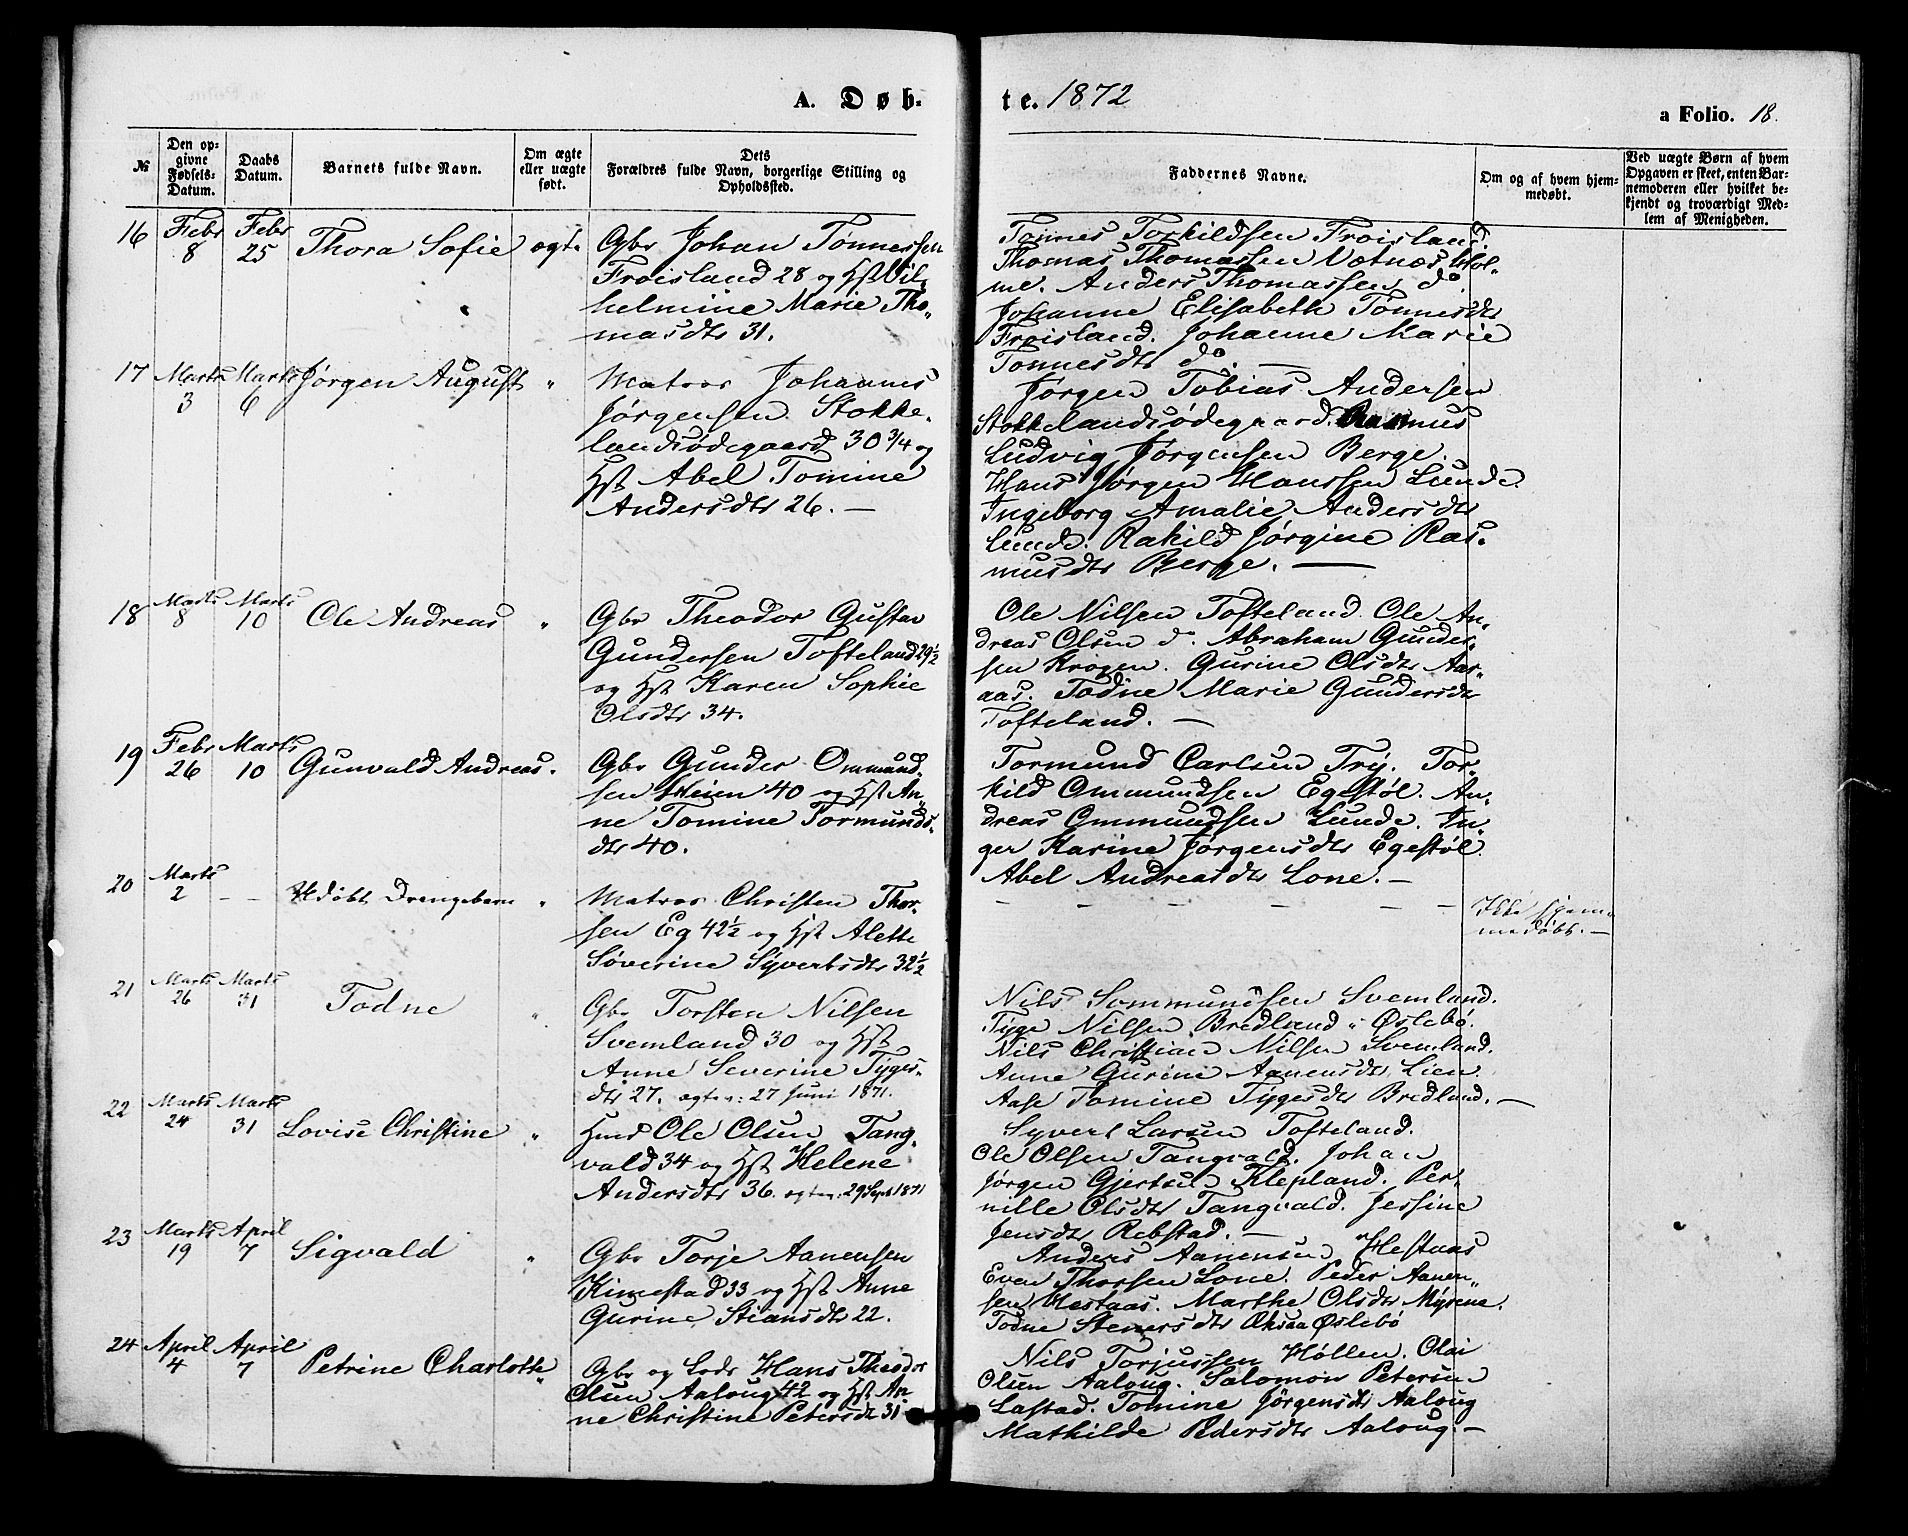 A. Døb-
te. 1872
a Folio. 18.
№
Den op-
givne
Fødsels-
Datum.
Daabs
Datum.
Barnets fulde Navn.
Om ægte
eller uægte
født.
Dets
Forældres fulde Navn, borgerlige Stilling og
Opholdssted.
Faddernes Navne.
Om og af hvem hjem-
medøbt.
Ved uægte Børn af hvem
Opgaven er skeet, enten Bar-
nemoderen eller hvilket be-
kjendt og troværdigt Med-
lem af Menigheden.
16 Febr 8 Febr 25 Thora Sofie ægte
Gbr Johan Tønnessen
Froisland 28 og Hst Vil-
helmine Marie Tho-
masdtr 31.
Tønnes Torkildsen Froisland.
Thomas Thomassen Vætnæs Hol-
me. Anders Thomassen do.
Johanne Elisabeth Tønnesdtr
Froisland. Johanne Marie
Tønnesdtr do. —
17 Marts 3 Marts 6 Jørgen August "
Matros Johannes
Jørgensen Stokke-
landsødegaard 30 3/4 og
Hst Abel Tomine
Andersdtr 26. —
Jørgen Tobias Andersen
Stokkelandsødegaard. Rasmus
Ludvig Jørgensen Berge.
Hans Jørgen Hanssen Lunde.
Ingeborg Amalie Andersdtr
Lunde. Rakild Jørgine Ras-
musdtr Berge. —
18 Marts 8 Marts 10 Ole Andreas "
Gbr Theodor Gustav
Gundersen Tofteland 29½
og Hst Karen Sophie
Olsdtr 34.
Ole Nilsen Tofteland. Ole An-
dreas Olsen do. Abraham Gunder-
sen Krogen. Gurine Olsdtr Aar-
aas. Todne Marie Gundersdtr
Tofteland. —
19 Febr 26 Marts 10 Gunvald Andreas "
Gbr Gunder Ommund-
sen Heien 40 og Hst An-
ne Tomine Tormunds-
dtr 40.
Tormund Carlsen Try. Tor-
kild Ommundsen Egestøl. An-
dreas Ommundsen Lunde. In-
ger Karine Jørgensdtr Egestøl.
Abel Andreasdtr Lone. —
20 Marts 2 — — Udøbt Drengebarn "
Matros Christen Thor-
sen Eg 42½ og Hst Alette
Søverine Syvertsdtr 32½
— — — — — —
Ikke hjem-
medøbt. —
21 Marts 26 Marts 31 Todne "
Gbr Torsten Nilsen
Svemland 30 og Hst
Anne Severine Tyges-
dtr 27. egtev: 27 Juni 1871.
Nils Sommundsen Svemland.
Tyge Nilsen Bredland i Øslebø.
Nils Christian Nilsen Svemland.
Anne Gurine Aanensdtr Lien.
Aase Tomine Tygesdtr Bredland. —
22 Marts 24 Marts 31 Lovise Christine "
Hmd Ole Olsen Tang-
vald 34 og Hst Helene
Andersdtr 36. egtev: 29 Sept 1871
Syvert Larsen Tofteland.
Ole Olsen Tangvald. Johan
Jørgen Gjertsen Klepland. Per-
nille Olsdtr Tangvald. Jessine
Jensdtr Rebstad. —
23 Marts 19 April 7 Sigvald "
Gbr Torje Aanensen
Kimestad 33 og Hst Anne
Gurine Stiansdtr 22.
Anders Aanensen Hestaas
Even Thorsen Lone. Peder Aanen-
sen Hestaas. Marthe Olsdtr Myrene.
Todne Stenersdtr Øksaa Øslebø
24 April 4 April 7 Petrine Charlotte "
Gbr og Lods Hans Theodor
Olsen Aaloug 42 og Hst An-
ne Christine Petersdtr 31
Nils Torjussen Høllen. Olai
Olsen Aaloug. Salomon Petersen
Lastad. Tomine Jørgensdtr Aaloug
Mathilde Pedersdtr Aaloug. —